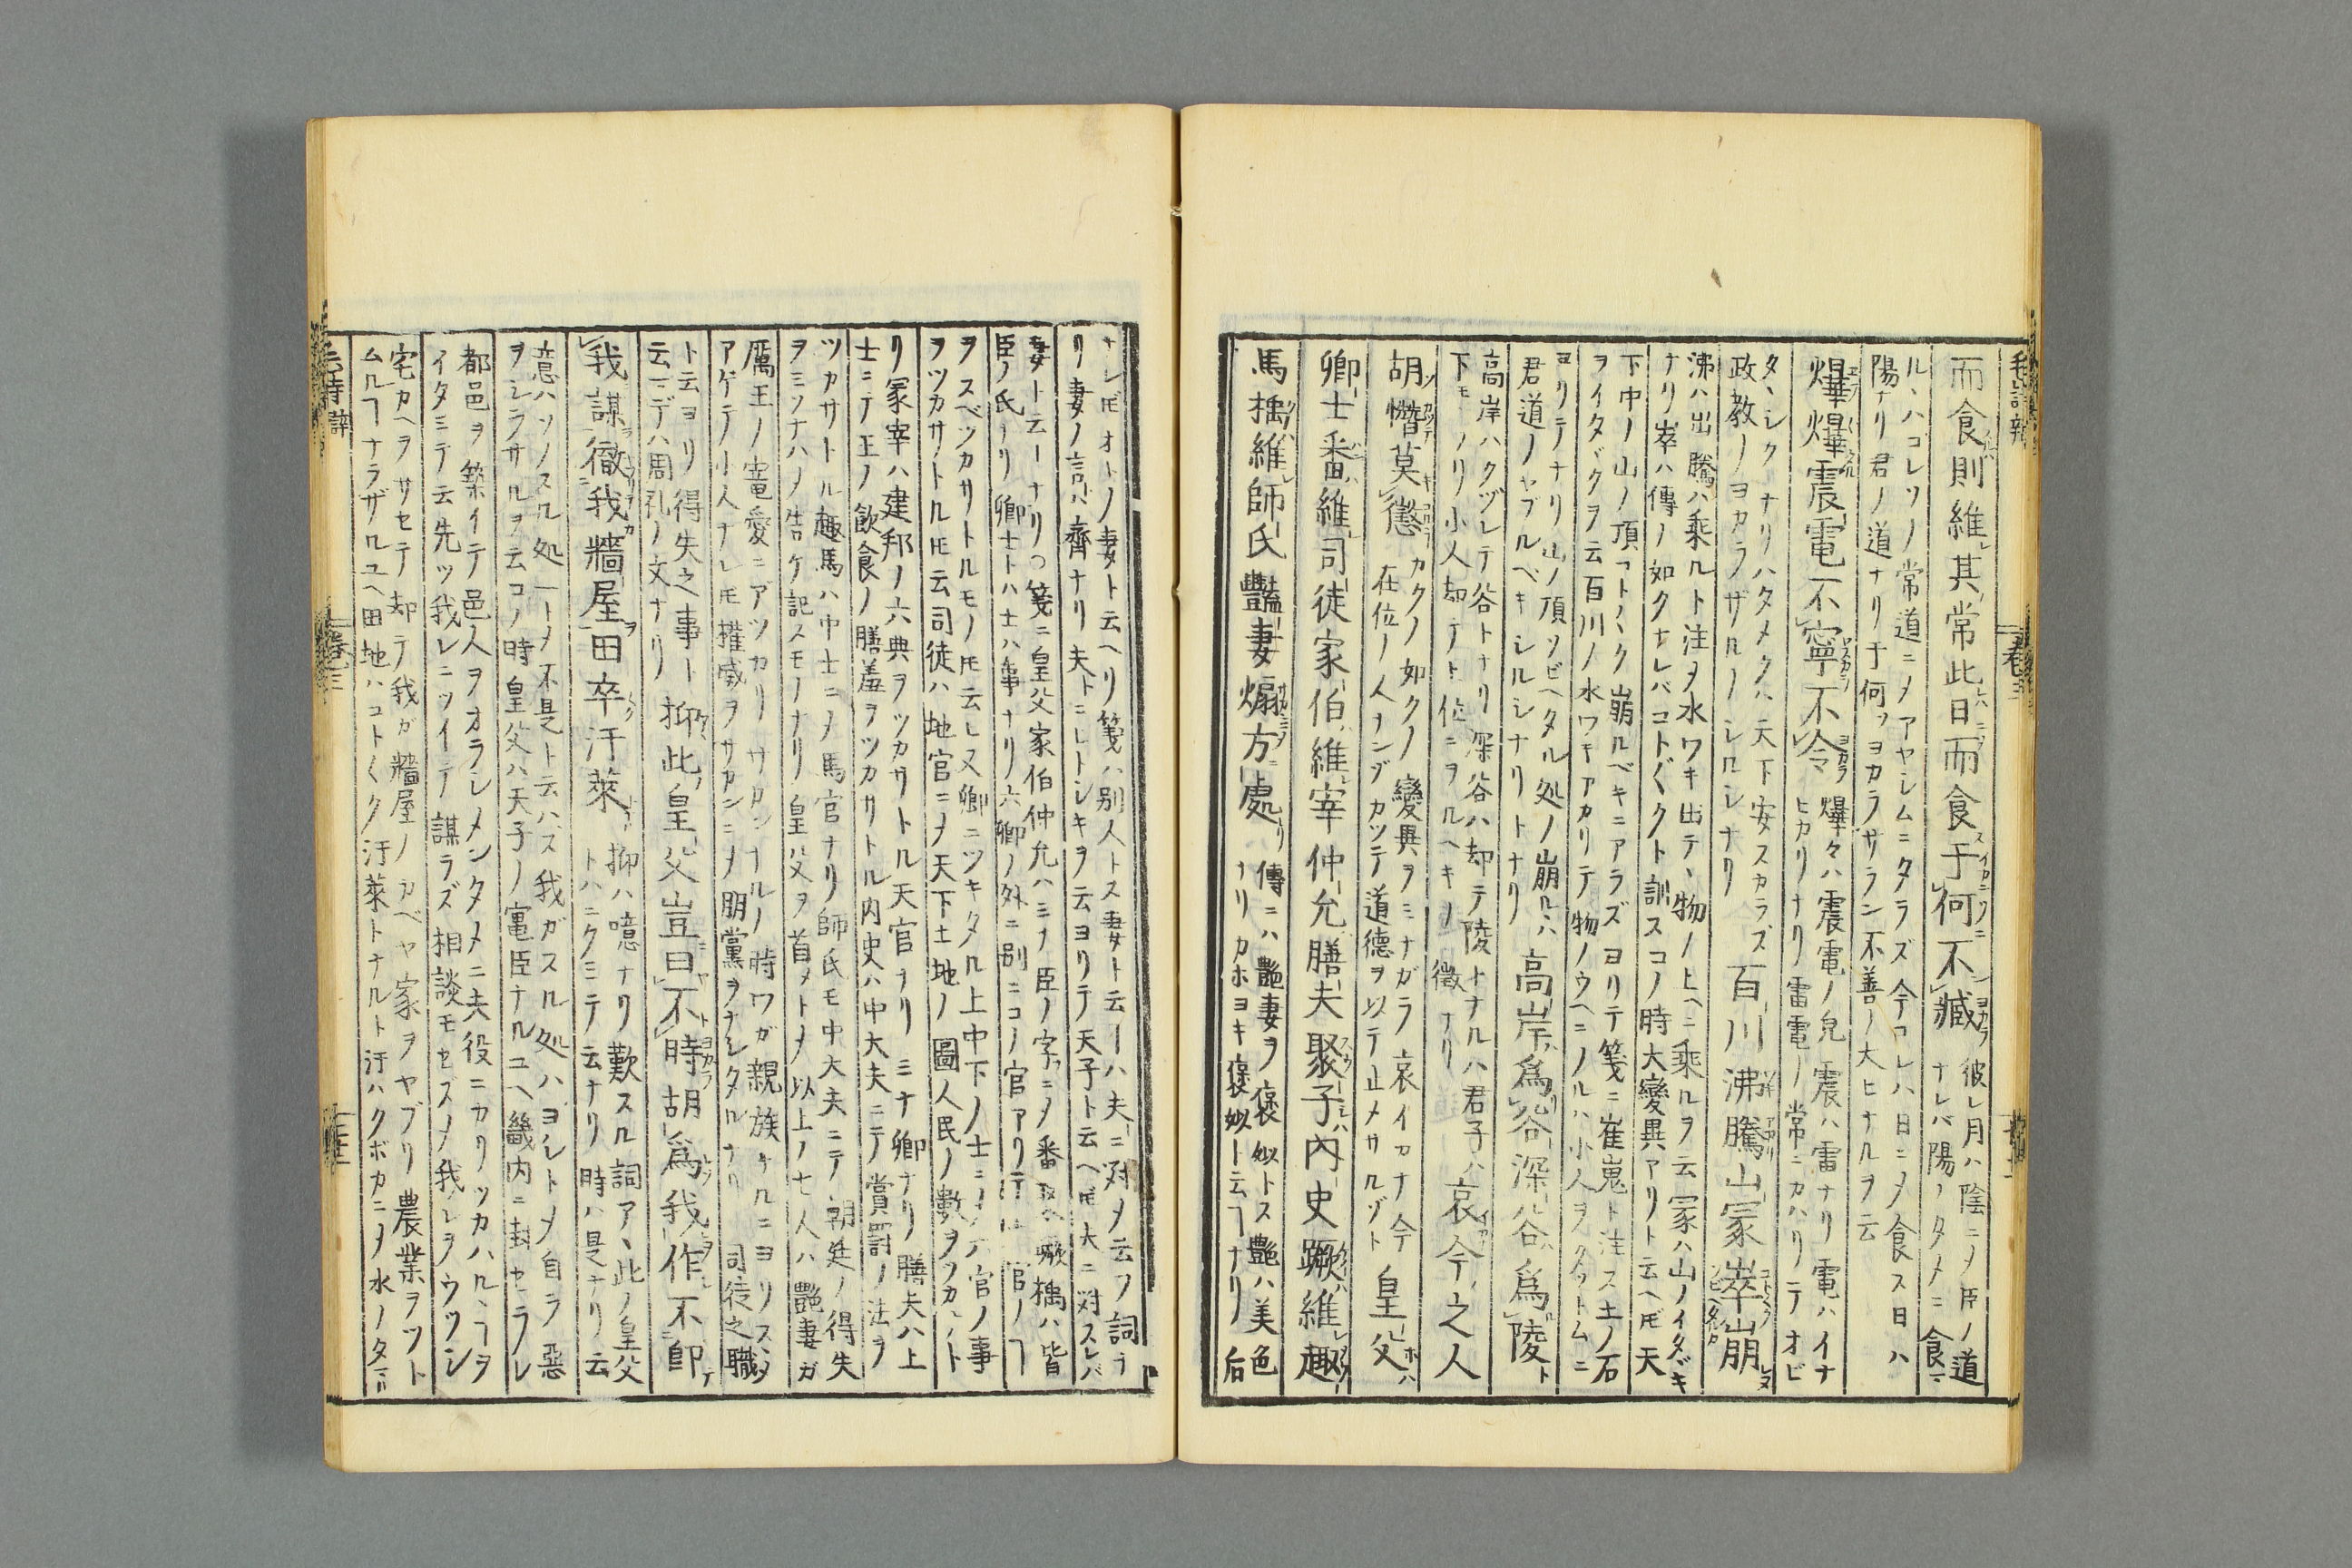 毛詩辨
卷三
而食則維其常此日而食于何不臧 彼レ月ハ陰ニメ臣ノ道
ナレバ陽ノタメニ食セ
ルヽハコレソノ常道ニメアヤシムニタラズ今コレハ日ニメ食ス日ハ
陽ナリ君ノ道ナリ于何ソヨカラザラン不善ノ大ヒナルヲ云
爗爗震電不寧不令 爗々ハ震電ノ皃震ハ雷ナリ電ハイナ
ヒカリナリ雷電ノ常ニカハリテオビ
タヽシクナリハタメクハ天下安スカラズ
政教ノヨカラザルノシルシナリ
百川沸騰山冢崒崩
沸ハ出騰ハ乘ルト注メ水ワキ出テヽ物ノ上ヘニ乘ルヲ云冢ハ山ノイタヾキ
ナリ崒ハ傳ノ如クナレバコトぐクト訓スコノ時大變異アリト云ヘ𪜈天
下中ノ山ノ頂コトぐク崩ルベキニアラズヨリテ箋ニ崔嵬ト注ス土ノ石
ヲイタヾクヲ云百川ノ水ワキアカリテ物ノウヘニノルハ小人ヲ
ヨリテナリ山ノ頂ソビヘタル処ノ崩ルヽハ
君道ノヤブルベキシルシナリトナリ
高岸爲谷深谷爲陵
高岸ハクヅレテ谷トナリ深谷ハ却テ陵トナルハ君子ハ
下モ ノリ小人却テト位ニヲルヘキノ徴ナリ
哀今之人
胡憯莫懲 カクノ如クノ變異ヲミナガラ哀イカナ今
在位ノ人ナンゾカツテ道德ヲ以テ止メサルゾト
皇父
卿士番維司徒家伯維宰仲允膳夫聚子內史蹶維趣
馬楀維師氏豔妻煽方處 傳ニハ艷妻ヲ褒姒トス艷ハ美色
ナリカホヨキ褒姒ト云フナリ后
ナレ𪜈オトノ妻ト云ヘリ箋ハ別人トス妻ト云ーハ夫ニ対メ云フ詞ナ
リ妻ノ言ハ齊ナリ夫トニレトシキヲ云ヨリテ天子ト云ヘ𪜈夫ニ対スレバ
妻ト云ーナリ○箋ニ皇父家伯仲允ハミナ臣ノ字ニメ番聚蹶楀ハ皆
臣ノ氏ナリ卿士トハ士ハ事ナリ六卿ノ外ニ別ニコノ官アリテ 官ノ
ヲスベツカサトルモノ𪜈云レ又卿ニツキタル上中下ノ士ニ 六官ノ事
ヲツカサトル𪜈云司徒ハ地官ニメ天下土地ノ圖人民ノ數ヲツカト
リ冢宰ハ建邦ノ六典ヲツカサトル天官ナリミナ卿ナリ膳夫ハ上
士ニテ王ノ飲食ノ膳羞ヲツカサトル内史ハ中大夫ニテ賞罰ノ法ヲ
ツカサトル趣馬ハ中士ニメ馬官ナリ師氏モ中大夫ニテ朝廷ノ得失
ヲミソナハメ告ケ記スモノナリ皇父ヲ首メトメ以上ノ七人ハ艷妻ガ
厲王ノ寵愛ニアツカリ サカンナルノ時ワガ親族ケルニヨリスヽメ
アゲテ小人ナレ𪜈權威ヲサカンニメ朋黨ヲナシタルナリ 司徒之職
ト云ヨリ得失之事ト
云マデハ周礼ノ文ナリ
抑此皇父豈曰不時胡爲我作不卽
我謀徹我牆屋田卒汙萊 抑ハ噫ナリ歎スル詞アヽ此ノ皇父
トハニクミテ云ナリ時ハ是ナリ云
意ハソノスル処一ーメ不是ト云ハス我ガスル処ハヨシトメ自ラ惡
ヲシラサルヲ云コノ時皇父ハ天子ノ寵臣ナルユヘ畿内ニ封セラレ
都邑ヲ築イテ邑人ヲオラシメンタメニ夫役ニカリツカハルヽヲ
イタミテ云先ツ我レニツイテ謀ラズ相談モセズメ我レヲウツシ
宅カヘヲサセテ却テ我ガ牆屋ノカベヤ家ヲヤブリ農業ヲツト
ムルコナラザルユヘ田地ハコトぐク汙萊トナルト汙ハクボカニメ水ノタマ
毛詩辨
卷三